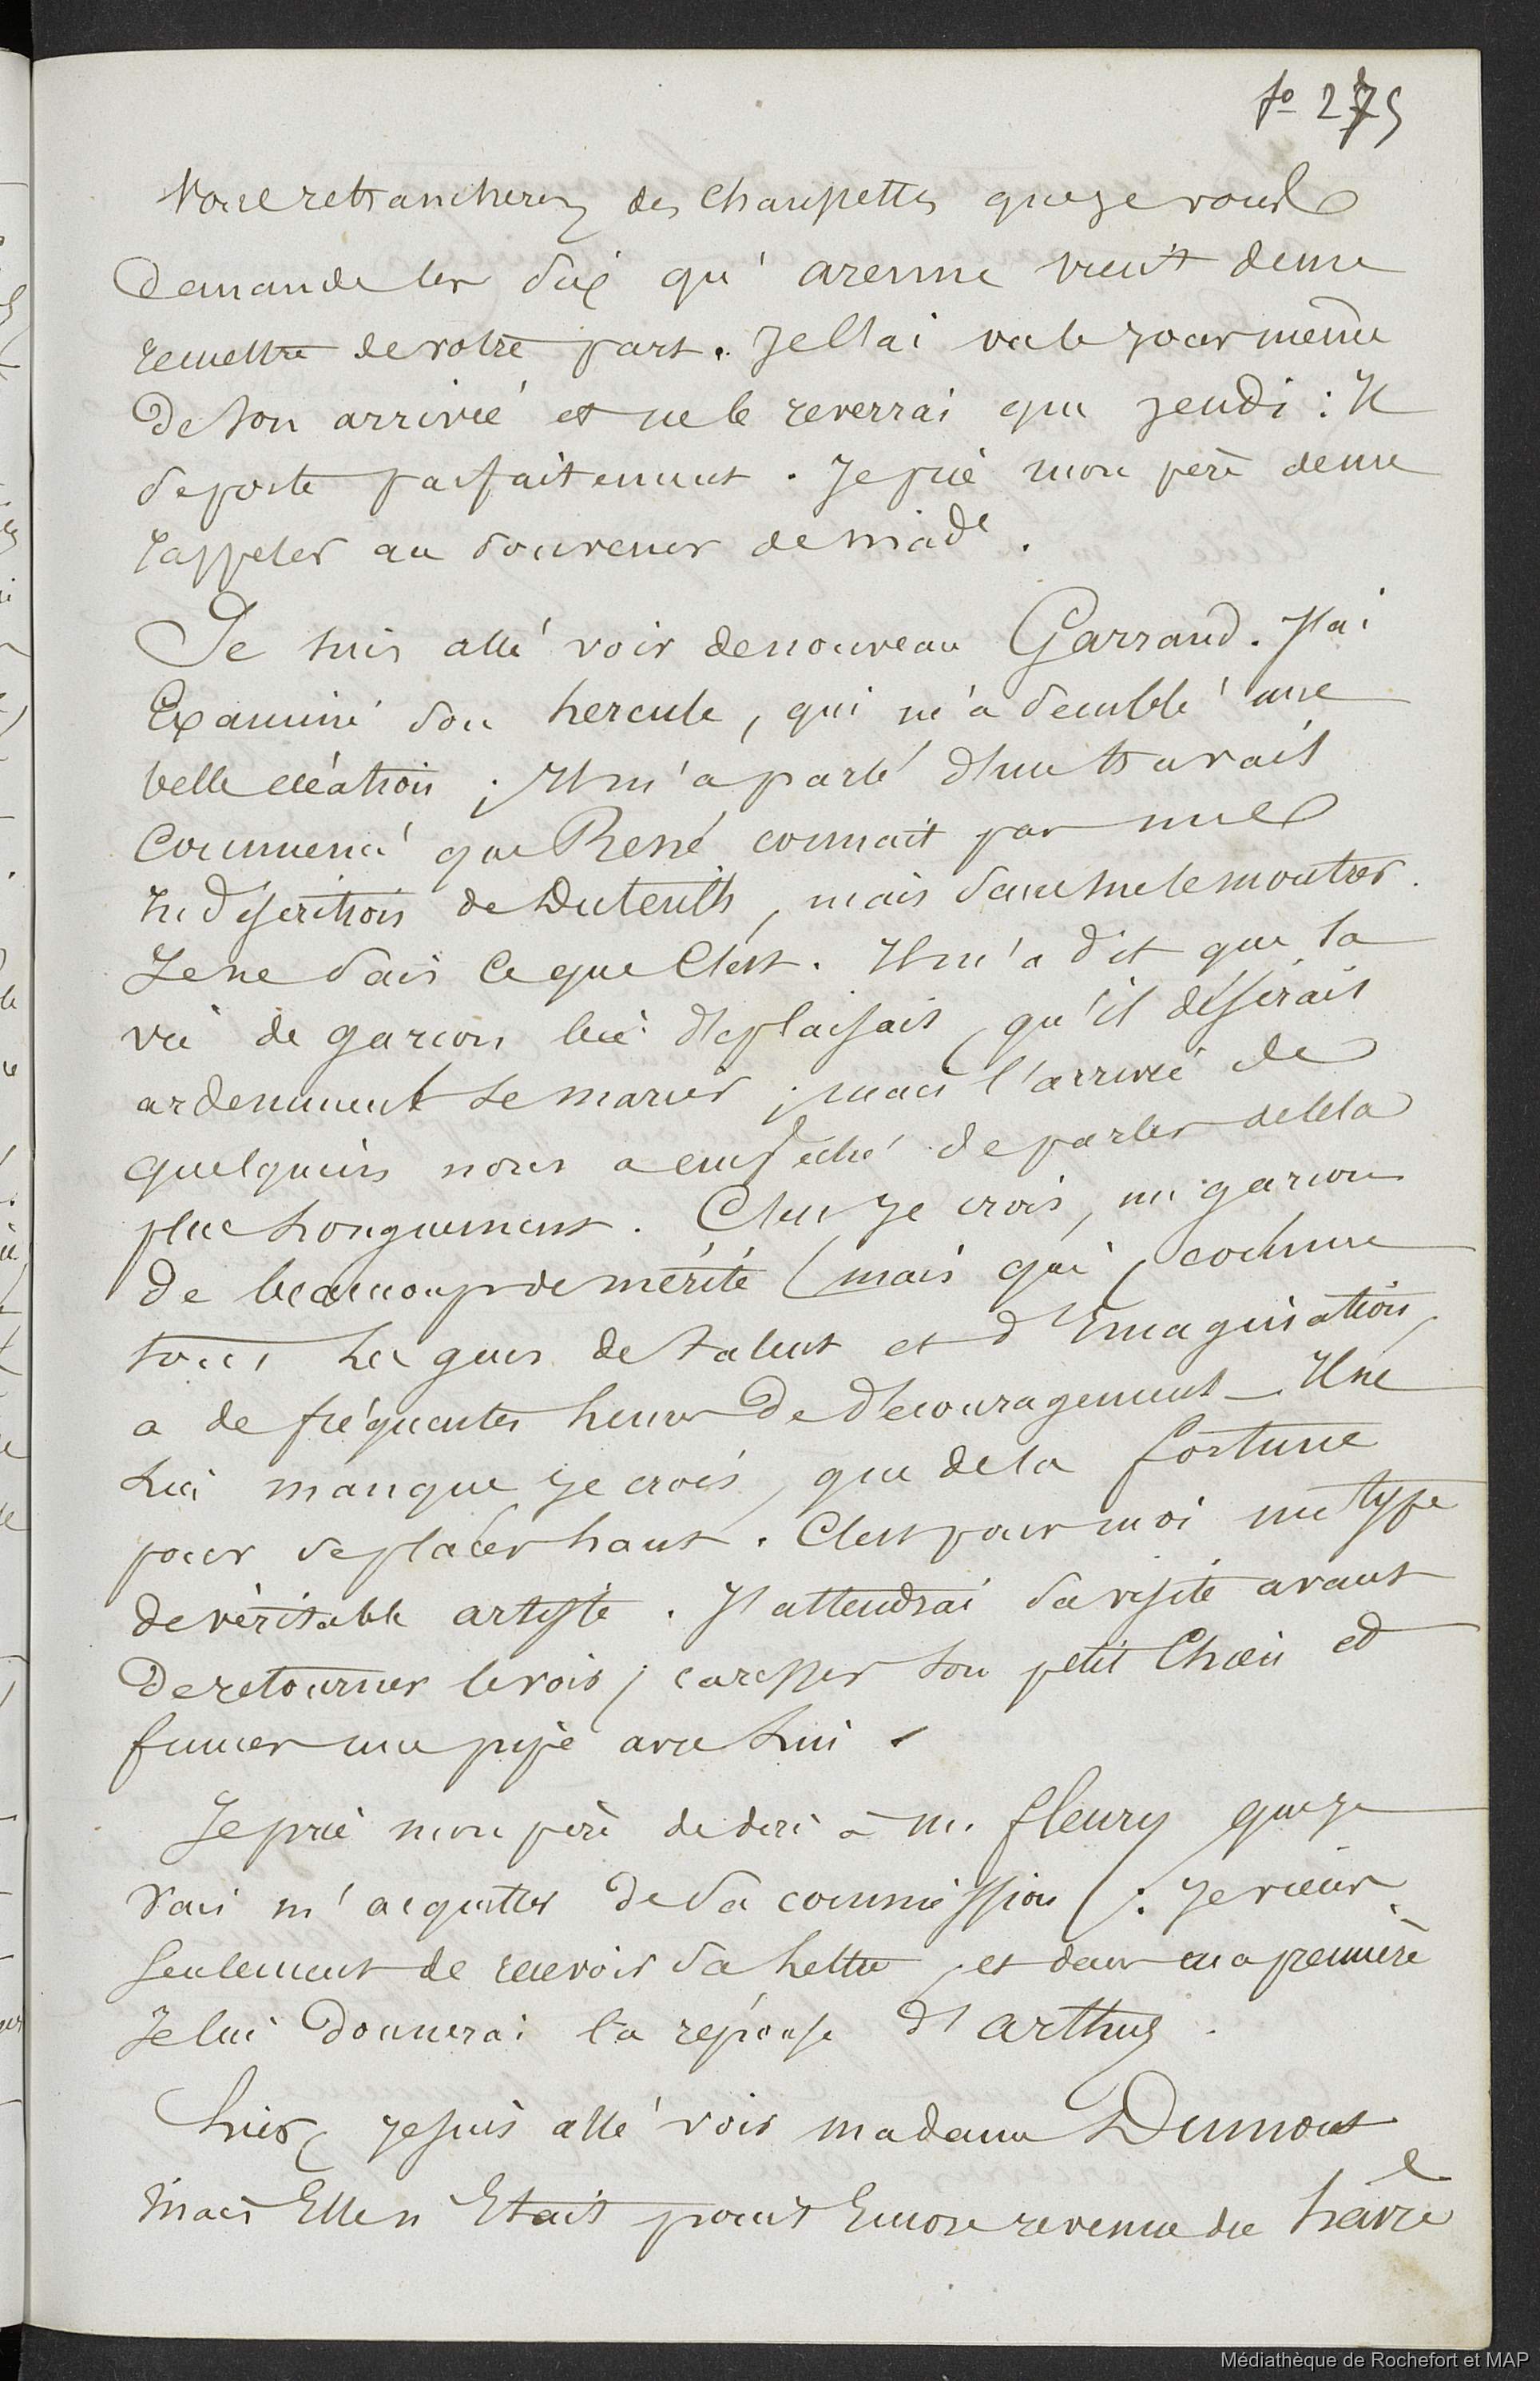 fo 275
Vous retrancherez des chaussettes que je vous
demande les six qu'avenne vient de me
remettre de votre part. Je l'ai vu le jour même
de son arrivée et ne le reverrai que jeudi : Il
se porte parfaitement. Je prie mon père de me
rappeler au souvenir de made.
Je suis allé voir de nouveau Garraud. J'ai
Examiné son hercule, qui m'a semblé une
belle création ; Il m'a parlé d'un travail
Commencé que René connait par une
Indiscrétion de Duteuth, mais sans me le montrer.
Je ne sais ce que C'est. Il m'a dit que la
vie de garçon lui déplaisait, qu'il désirait
ardemment se marier ; mais l'arrivée de
quelqu'un nous a empêché de parler de cela
plus longuement. C'est je crois, un garçon
de beaucoup de mérite, mais qui, comme
tous les gens de talent et d'Imagination,
a de fréquentes heures de découragement _ Il ne
lui manque je crois, que de la fortune
pour se placer haut. C'est pour moi un type
de véritable artiste. J'attendrai sa visite avant
de retourner le voir, caresser son petit Chien et
fumer une pipe avec lui.
Je prie mon père de dire à m. fleury que je
vais m'acquitter de sa commission : je viens
seulement de recevoir sa lettre, et dans ma première
Je lui donnerai la réponse d'arthus.
hier, je suis allé voir madame Dumont
Mais Elle n'Etait point Encore revenue du havre
Médiathèque de Rochefort et MAP